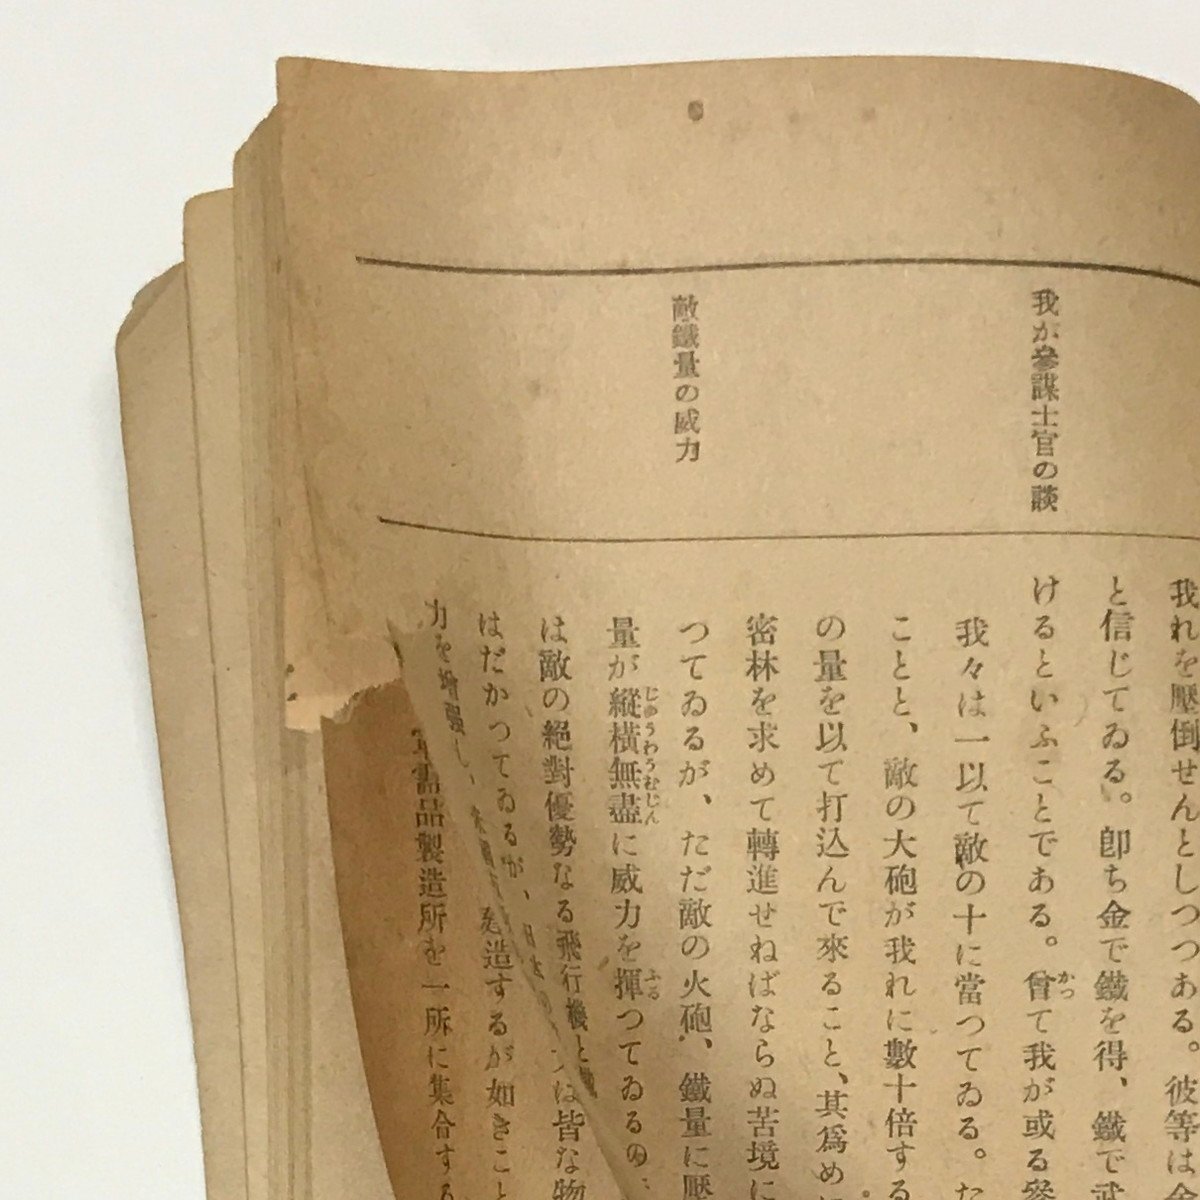 我が參謀士官の談
敵鐵量の威力
我れを壓倒せんとしつつある。彼等は金
と信じてゐる。卽ち金で鐵を得、鐵で武
けるといふことである。曾て我が或る參
かつ
我々は一以て敵の十に當つてゐる。た
ことと、敵の大砲が我れに數十倍する
の量を以て打込んで來ること、其爲めに
密林を求めて轉進せねばならぬ苦境に
つてゐるが、ただ敵の火砲、鐵量に壓
量が縱橫無盡に威力を揮つてゐるの
じゆうわうむじん
ふる
は敵の絕對優勢なる飛行機と
は皆な物
はだかつてゐるが、
造するが如きこと
力を增强し、
品製造所を一所に集合する